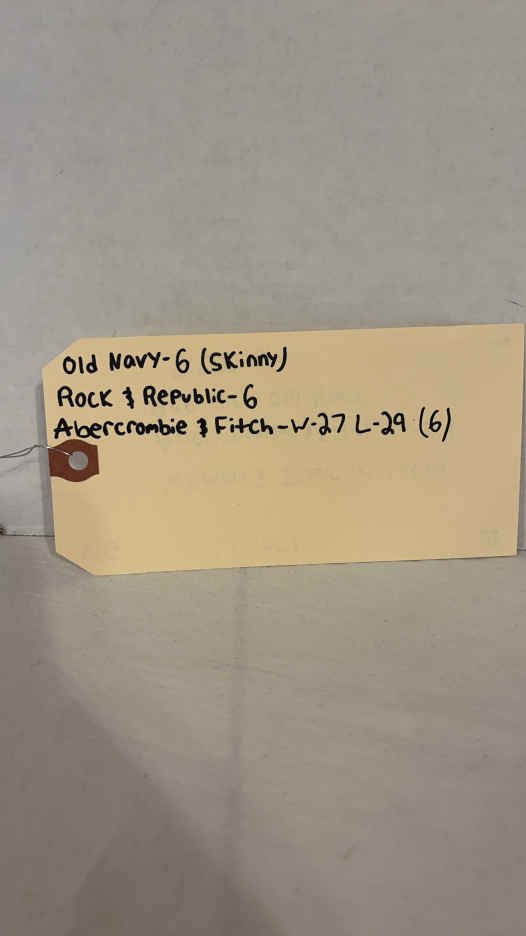 Old Navy-6 (Skinny)
Rock & Republic-6
Abercrombie & Fitch-W-27 L-29 (6)